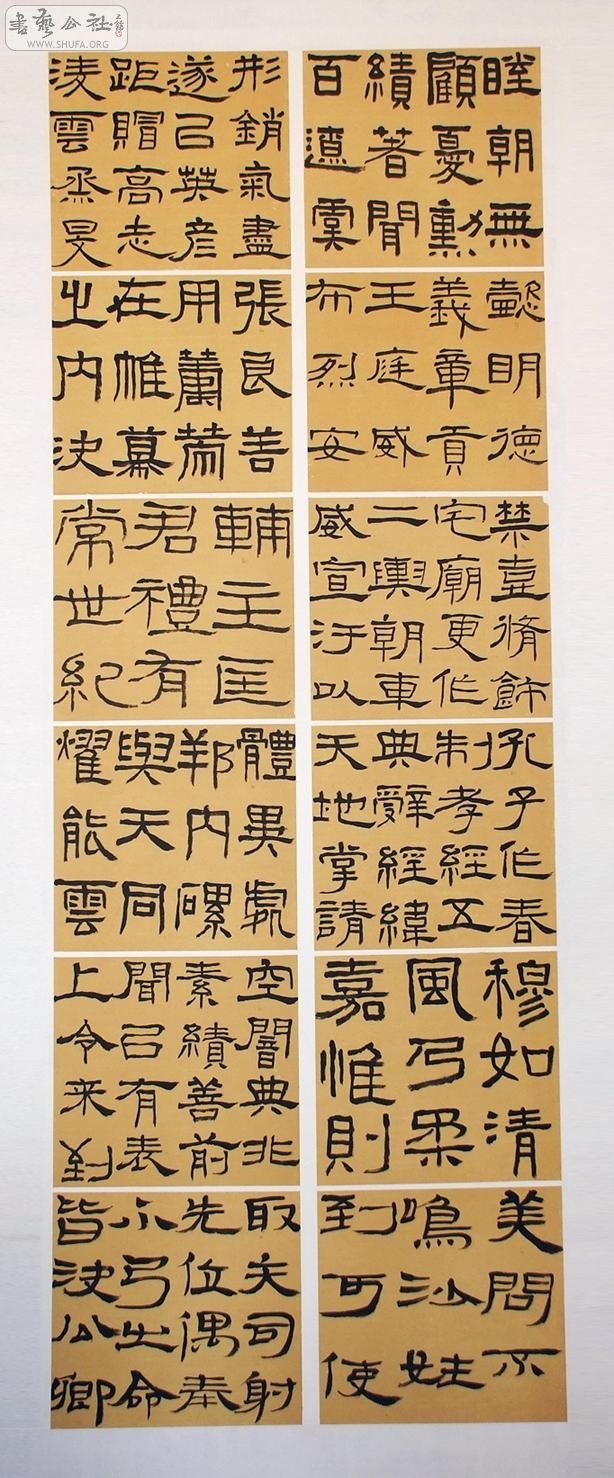 書藝公社
WWW.SHUFA.ORG
睦朝無
顧憂勳
績著聞
百遼
懿明德
義章貢
王庭威
布烈安
禁臺脩飾
宅廟更作
二輿朝車
威宣汙以
孔子作春
制孝經五
典辭經緯
天地掌請
穆如清
風乃柔
嘉惟則
美問不
鳴沙
到可使
形銷氣盡
遂己英彦
距高志
淩雲烝旻
張良善
用
在帷幕
之内決
輔主匡
君禮有
常世紀
體異處
邦内磥
與天同
耀能雲
空闇典非
素績善前
聞召有表
上令来到
取夫司射
先位偶奉
小弓之命
皆決公卿